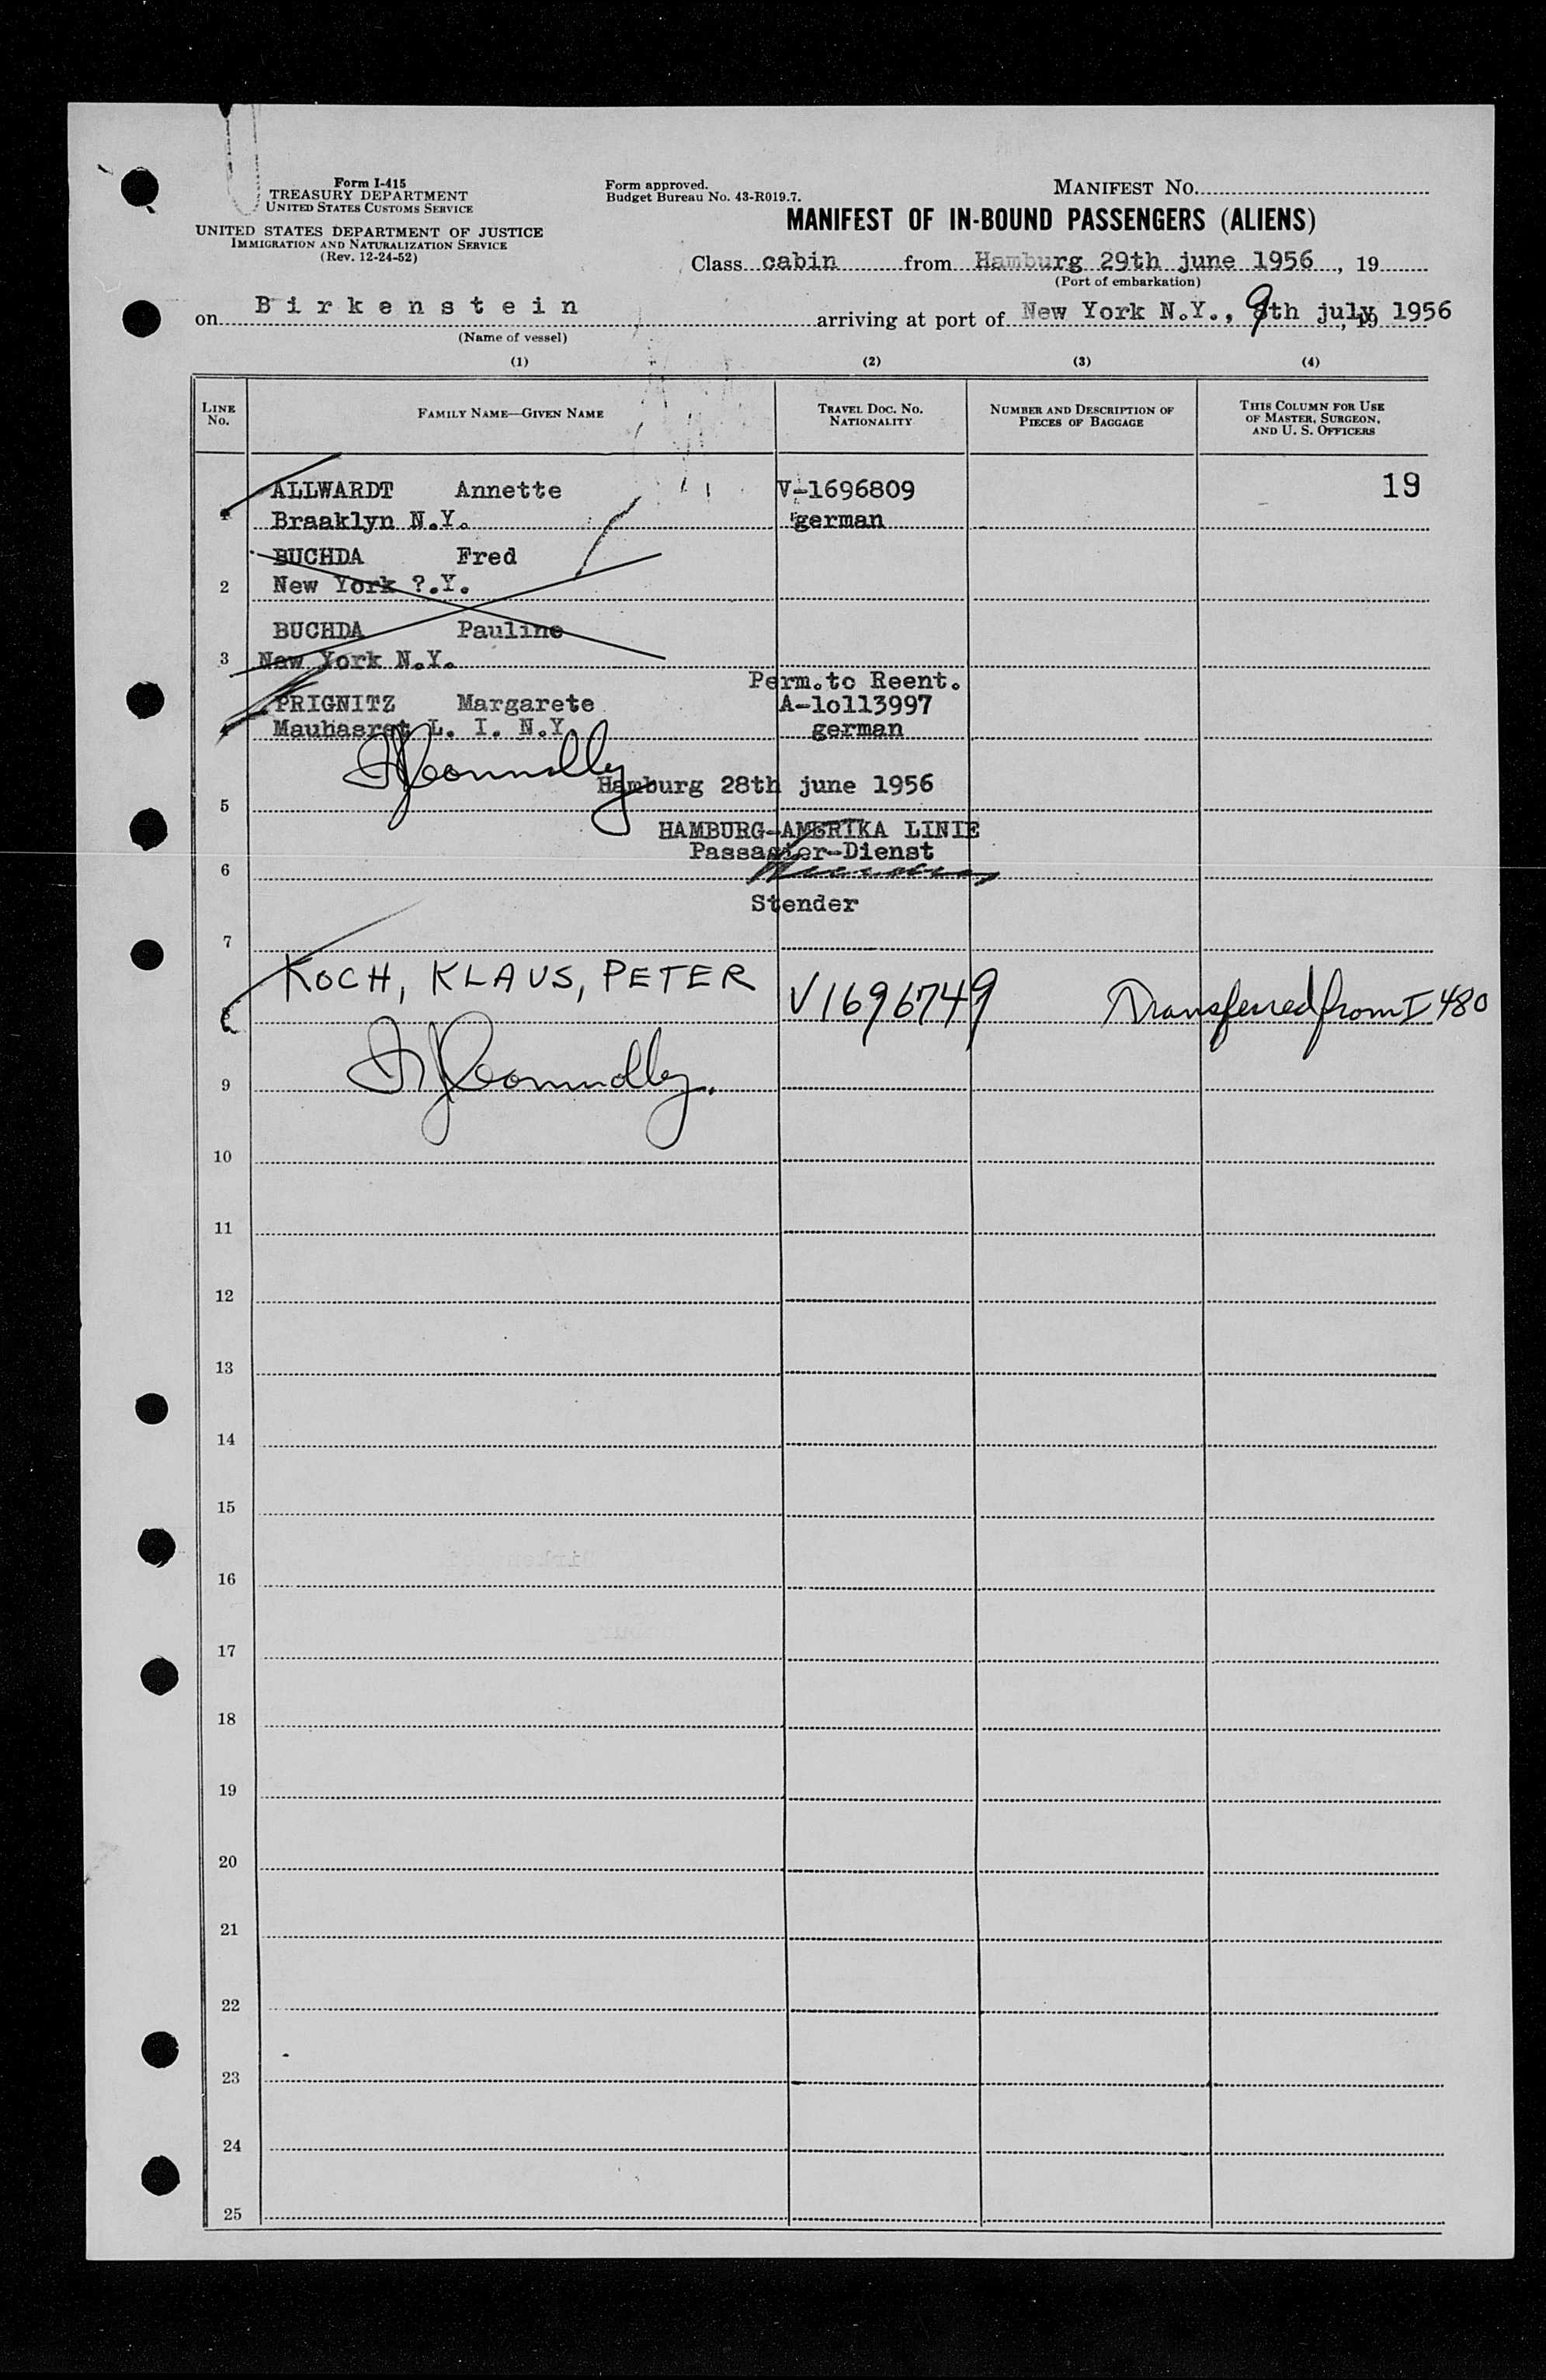 Form I-415
TREASURY DEPARTMENT
UNITED STATES CUSTOMS SERVICE
UNITED STATES DEPARTMENT OF JUSTICE
IMMIGRATION AND NATURALIZATION SERVICE
(Rev. 12-24-52)
Form approved.
Budget Bureau No. 43-R019.7.
MANIFEST NO.
MANIFEST OF IN-BOUND PASSENGERS (ALIENS)
Class cabin from Hamburg 29th june 1956, 19
(Port of embarkation)
on Birkenstein arriving at port of New York N.Y., 9th july 19 1956
(Name of vessel)
(1) (2) (3) (4)
LINE NO.
FAMILY NAME—GIVEN NAME
TRAVEL DOC. NO. NATIONALITY
NUMBER AND DESCRIPTION OF PIECES OF BAGGAGE
THIS COLUMN FOR USE OF MASTER, SURGEON, AND U. S. OFFICERS
ALLWARDT Annette V-1696809 19
1 Braaklyn N.Y. german
BUCHDA Fred
2 New York ?.Y.
BUCHDA Pauline
3 New York N.Y.
Perm.to Reent.
PRIGNITZ Margarete A-1o113997
4 Mauhasret L. I. N.Y. german
Hamburg 28th june 1956
5
HAMBURG-AMERIKA LINIE
Passagier-Dienst
6
Stender
7
KOCH, KLAUS, PETER V1696749 Transferred from I 480
8
9
10
11
12
13
14
15
16
17
18
19
20
21
22
23
24
25